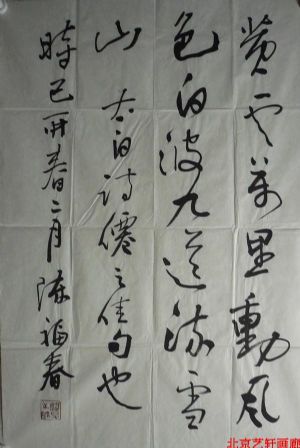 黄云萬里動风
色白波九道流雪
山 太白诗僊之佳句也
時己丑春二月 陈福春
北京艺轩画廊